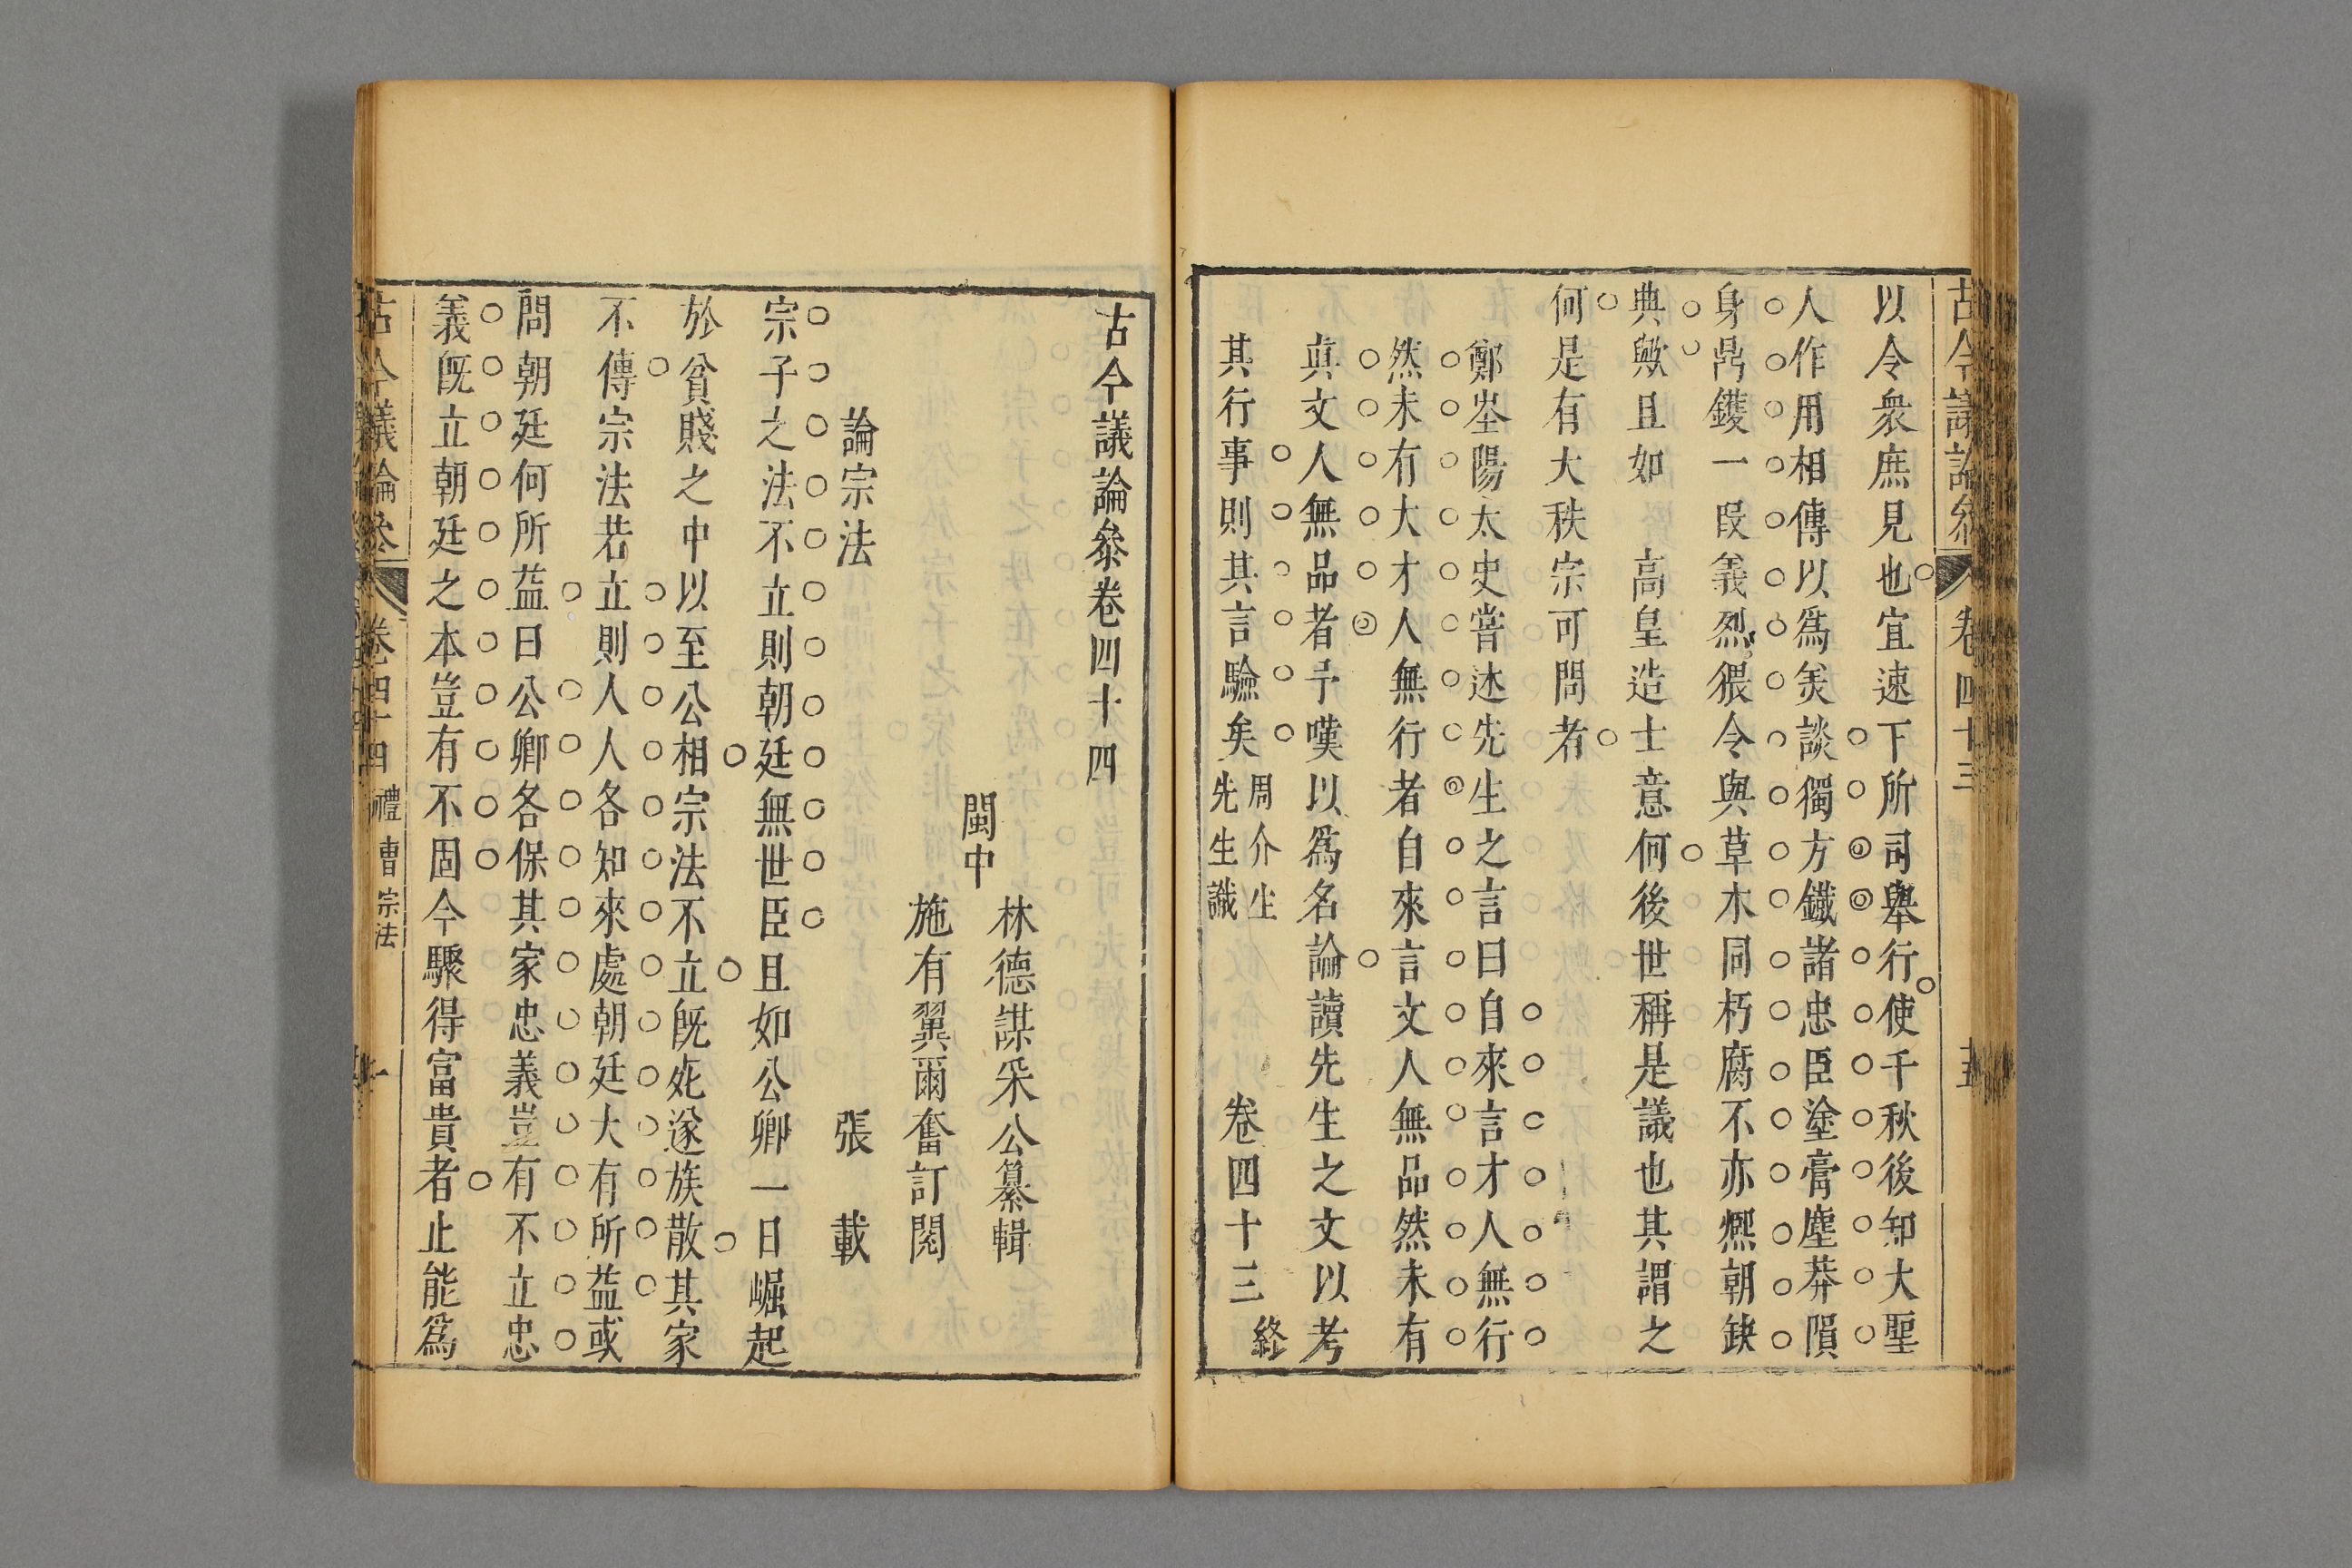 古今議論叅
卷四十三
以令衆庶見也宜速下所司舉行使千秋後知大聖
人作用相傳以爲羙談獨方鐵諸忠臣塗膏塵莽隕
身鼎鑊一叚義烈猥令與草木同朽腐不亦熈朝缺
典歟且如 高皇造士意何後世稱是議也其謂之
何是有大秩宗可問者
鄭峚陽太史嘗述先生之言曰自來言才人無行
然未有大才人無行者自來言文人無品然未有
真文人無品者予嘆以爲名論讀先生之文以考
其行事則其言驗矣
周介生
先生識
卷四十三
終
古今議論叅卷四十四
林德謀采公纂輯
閩中
施有翼爾奮訂閱
論宗法 張 載
宗子之法不立則朝廷無世臣且如公卿一日崛起
於貧賤之中以至公相宗法不立旣死遂族散其家
不傳宗法若立則人人各知來處朝廷大有所益或
問朝廷何所益曰公卿各保其家忠義豈有不立忠
義旣立朝廷之本豈有不固今驟得富貴者止能爲
古今議論叅
卷四十四
禮曹
宗法
一